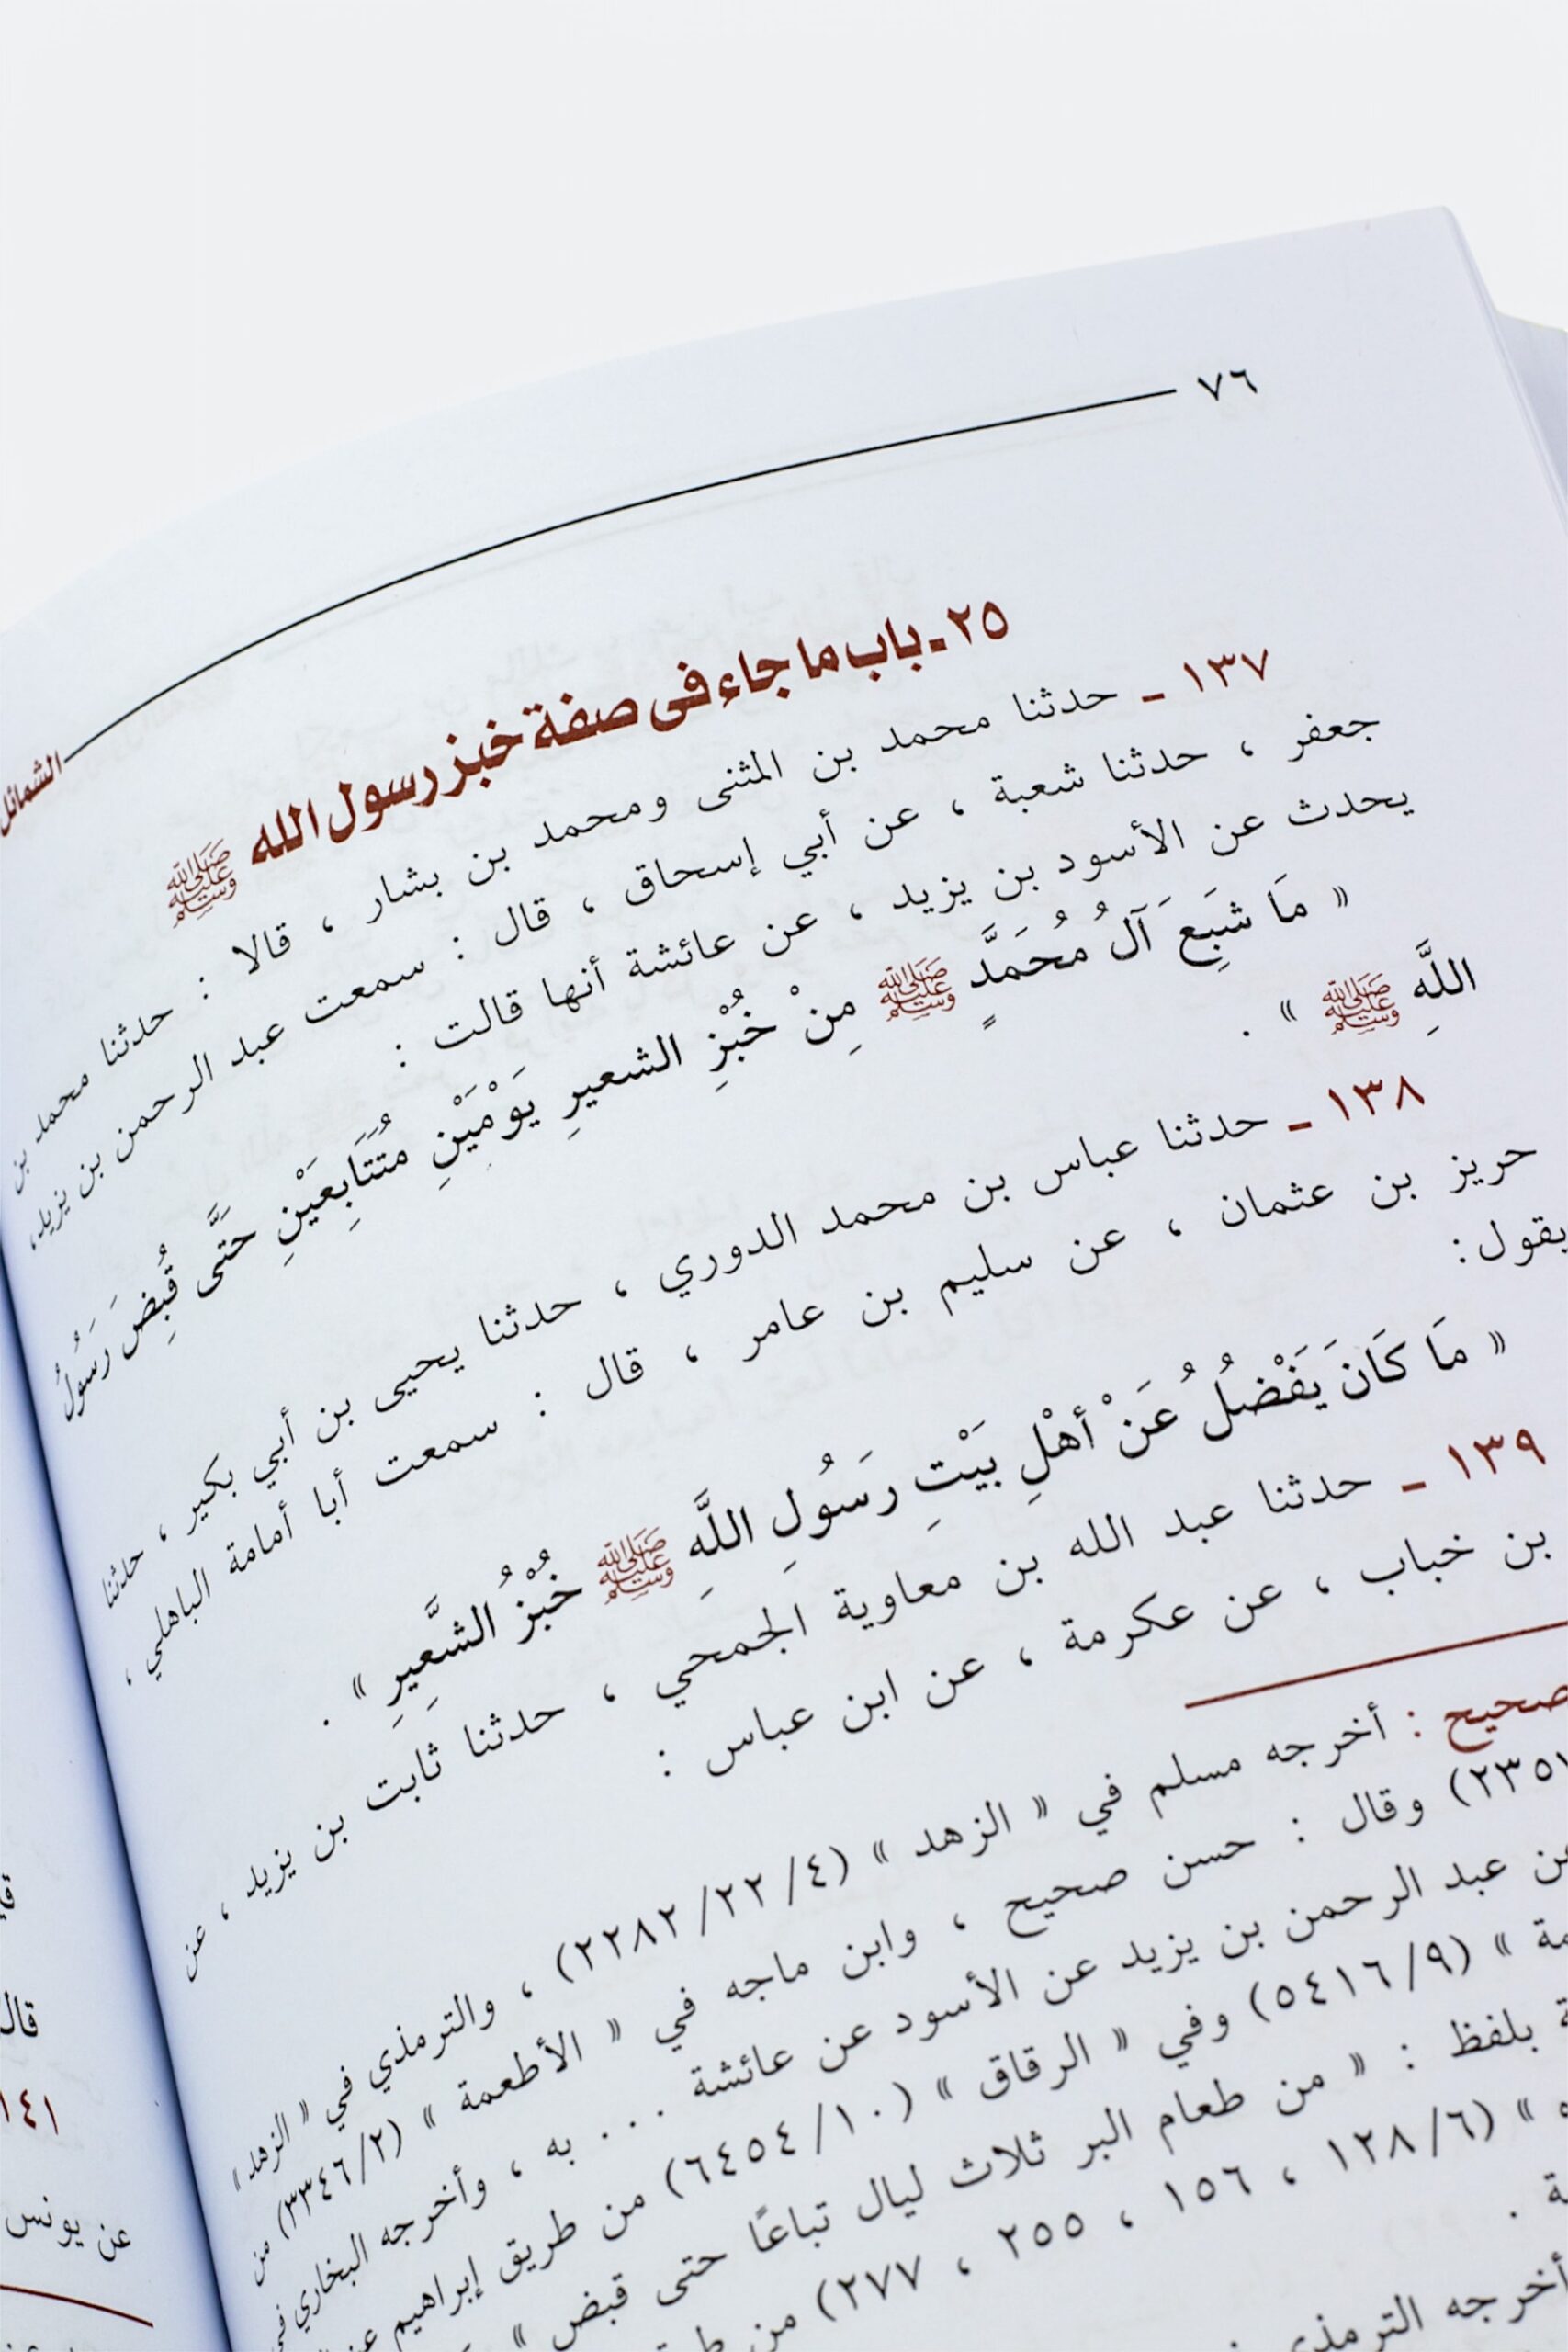 ٧٦
الشمائل
٢٥ ـ باب ما جاء فى صفة خبز رسول الله ﷺ
١٣٧ ـ حدثنا محمد بن المثنى ومحمد بن بشار ، قالا : حدثنا محمد بن
جعفر ، حدثنا شعبة ، عن أبي إسحاق ، قال : سمعت عبد الرحمن بن يزيد،
يحدث عن الأسود بن يزيد ، عن عائشة أنها قالت :
« مَا شَبِعَ آلُ مُحَمَّدٍ ﷺ مِنْ خُبْزِ الشعيرِ يَوْمَيْنِ مُتَتَابِعَيْنِ حَتَّى قُبِضَ رَسُولُ
اللَّهِ ﷺ » .
١٣٨ ـ حدثنا عباس بن محمد الدوري ، حدثنا يحيى بن أبي بكير ، حدثنا
حريز بن عثمان ، عن سليم بن عامر ، قال : سمعت أبا أمامة الباهلي ،
يقول:
« مَا كَانَ يَفْضُلُ عَنْ أهْلِ بَيْتِ رَسُولِ اللَّهِ ﷺ خُبْزُ الشَّعِيرِ » .
١٣٩ ـ حدثنا عبد الله بن معاوية الجمحي ، حدثنا ثابت بن يزيد ، عن
بن خباب ، عن عكرمة ، عن ابن عباس :
صحيح : أخرجه مسلم في « الزهد » (٤/ ٢٢/ ٢٢٨٢) ، والترمذي في « الزهد »
وقال : حسن صحيح ، وابن ماجه في « الأطعمة » (٢/ ٣٣٤٦) من
عن عبد الرحمن بن يزيد عن الأسود عن عائشة . . . به ، وأخرجه البخاري في
» (٩/ ٥٤١٦) وفي « الرقاق » (١٠/ ٦٤٥٤) من طريق إبراهيم
بلفظ : « من طعام البر ثلاث ليال تباعًا حتى قبض »
» (٦/ ١٢٨ ، ١٥٦ ، ٢٥٥ ، ٢٧٧) من
أخرجه الترمذي
قال
١٤١
عن يونس